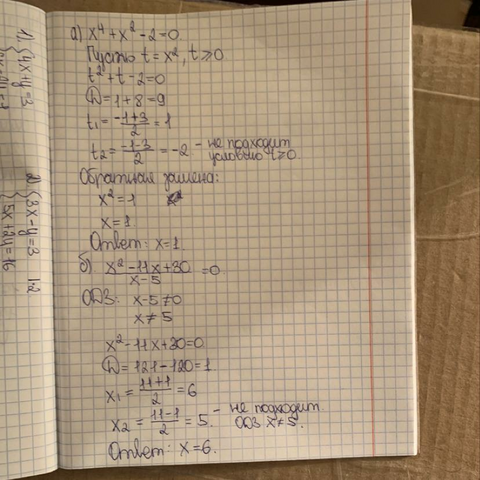 а) x⁴ + x² - 2 = 0
Пусть t = x², t ≥ 0
t² + t - 2 = 0
D = 1 + 8 = 9
t₁ = (-1+3)/2 = 1
t₂ = (-1-3)/2 = -2 - не подходит
условию t ≥ 0.
Обратная замена:
x² = 1
x = 1
Ответ: x = 1.
б) (x² - 11x + 30)/(x - 5) = 0
ОДЗ: x - 5 ≠ 0
x ≠ 5
x² - 11x + 30 = 0
D = 121 - 120 = 1
x₁ = (11+1)/2 = 6
x₂ = (11-1)/2 = 5 - не подходит
ОДЗ x ≠ 5.
Ответ: x = 6.
1) {4x + y = 3
2) {3x - y = 3 |·2
{5x + 2y = 16